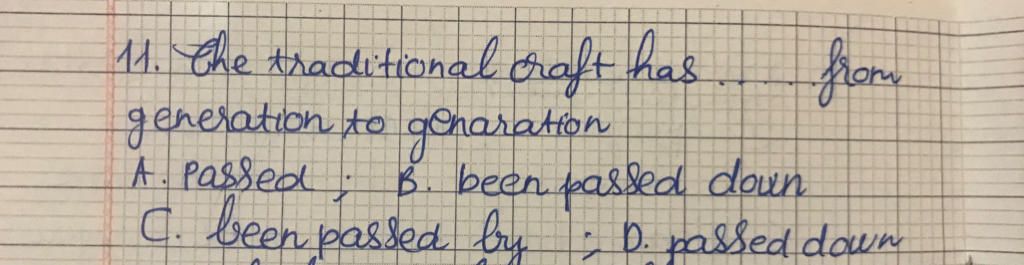 11. The traditional craft has ...... from
generation to genaration
A. passed ; B. been passed down
C. been passed by ; D. passed down